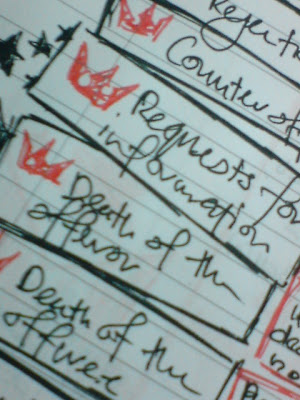 Rejection
Counter of
Requests for
information
Death of the
offeror
Death of the
offeree